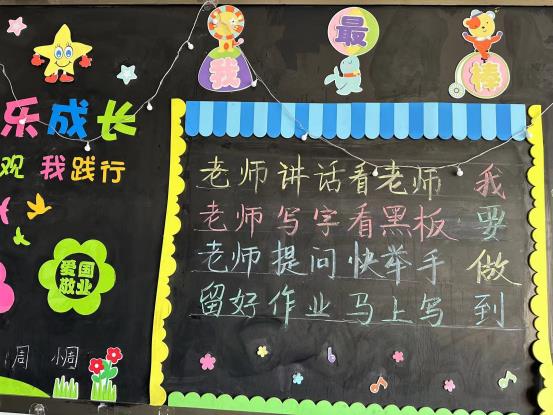 我最棒
乐成长
观 我践行
爱国
敬业
周 小周
老师讲话看老师
老师写字看黑板
老师提问快举手
留好作业马上写
我要做到